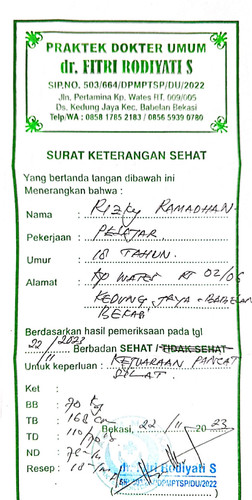 PRAKTEK DOKTER UMUM
dr. FITRI RODIYATI S
SIP.NO. 503/664/DPMPTSP/DU/2022
Jln. Pertamina Kp. Wates RT. 009/005
Ds. Kedung Jaya Kec. Babelan Bekasi
Telp/WA : 0858 1785 2183 / 0856 5939 0780
SURAT KETERANGAN SEHAT
Yang bertanda tangan dibawah ini
Menerangkan bahwa :
Nama : RIZKY RAMADHAN
Pekerjaan : PELAJAR
Umur : 18 TAHUN
Alamat : KP WATES RT 02/06
KEDUNG JAYA - BABELAN
BEKASI
Berdasarkan hasil pemeriksaan pada tgl
22/11 2023 Berbadan SEHAT / TIDAK SEHAT
Untuk keperluan : KEJUARAAN PENCAT
SILAT
Ket :
BB : 70 kg
TB : 168 cm
TD : 110/
ND :
Bekasi, 22 11 2023
Resep :
dr. Fitri Rodiyati S